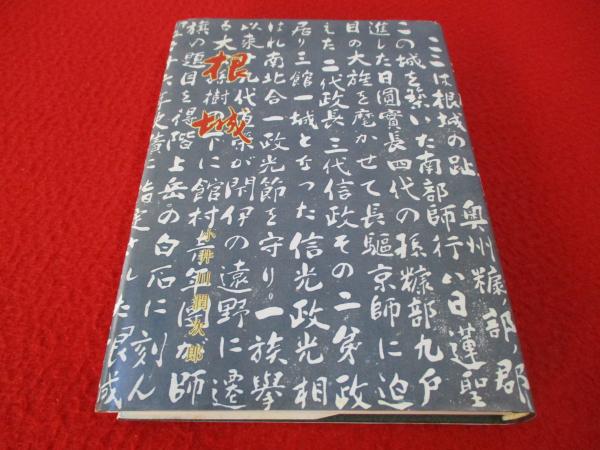 根城
小井川潤次郎
ここは根城の趾 奥州糠部郡
この城を築いた南部師行ハ日蓮聖
進した日圓實長四代の孫糠部九戸
目の大旌を靡かせて長驅京師に迫
えた 二代政長三代信政その二弟政
居り三館一城となった 信光政光相
はれ南北合一政光節を守り 一族擧
以来九代が閉伊の遠野に遷
る大樹の下に館村青年團が師
の題目を得階上岳の白石に刻ん
に指定された根城